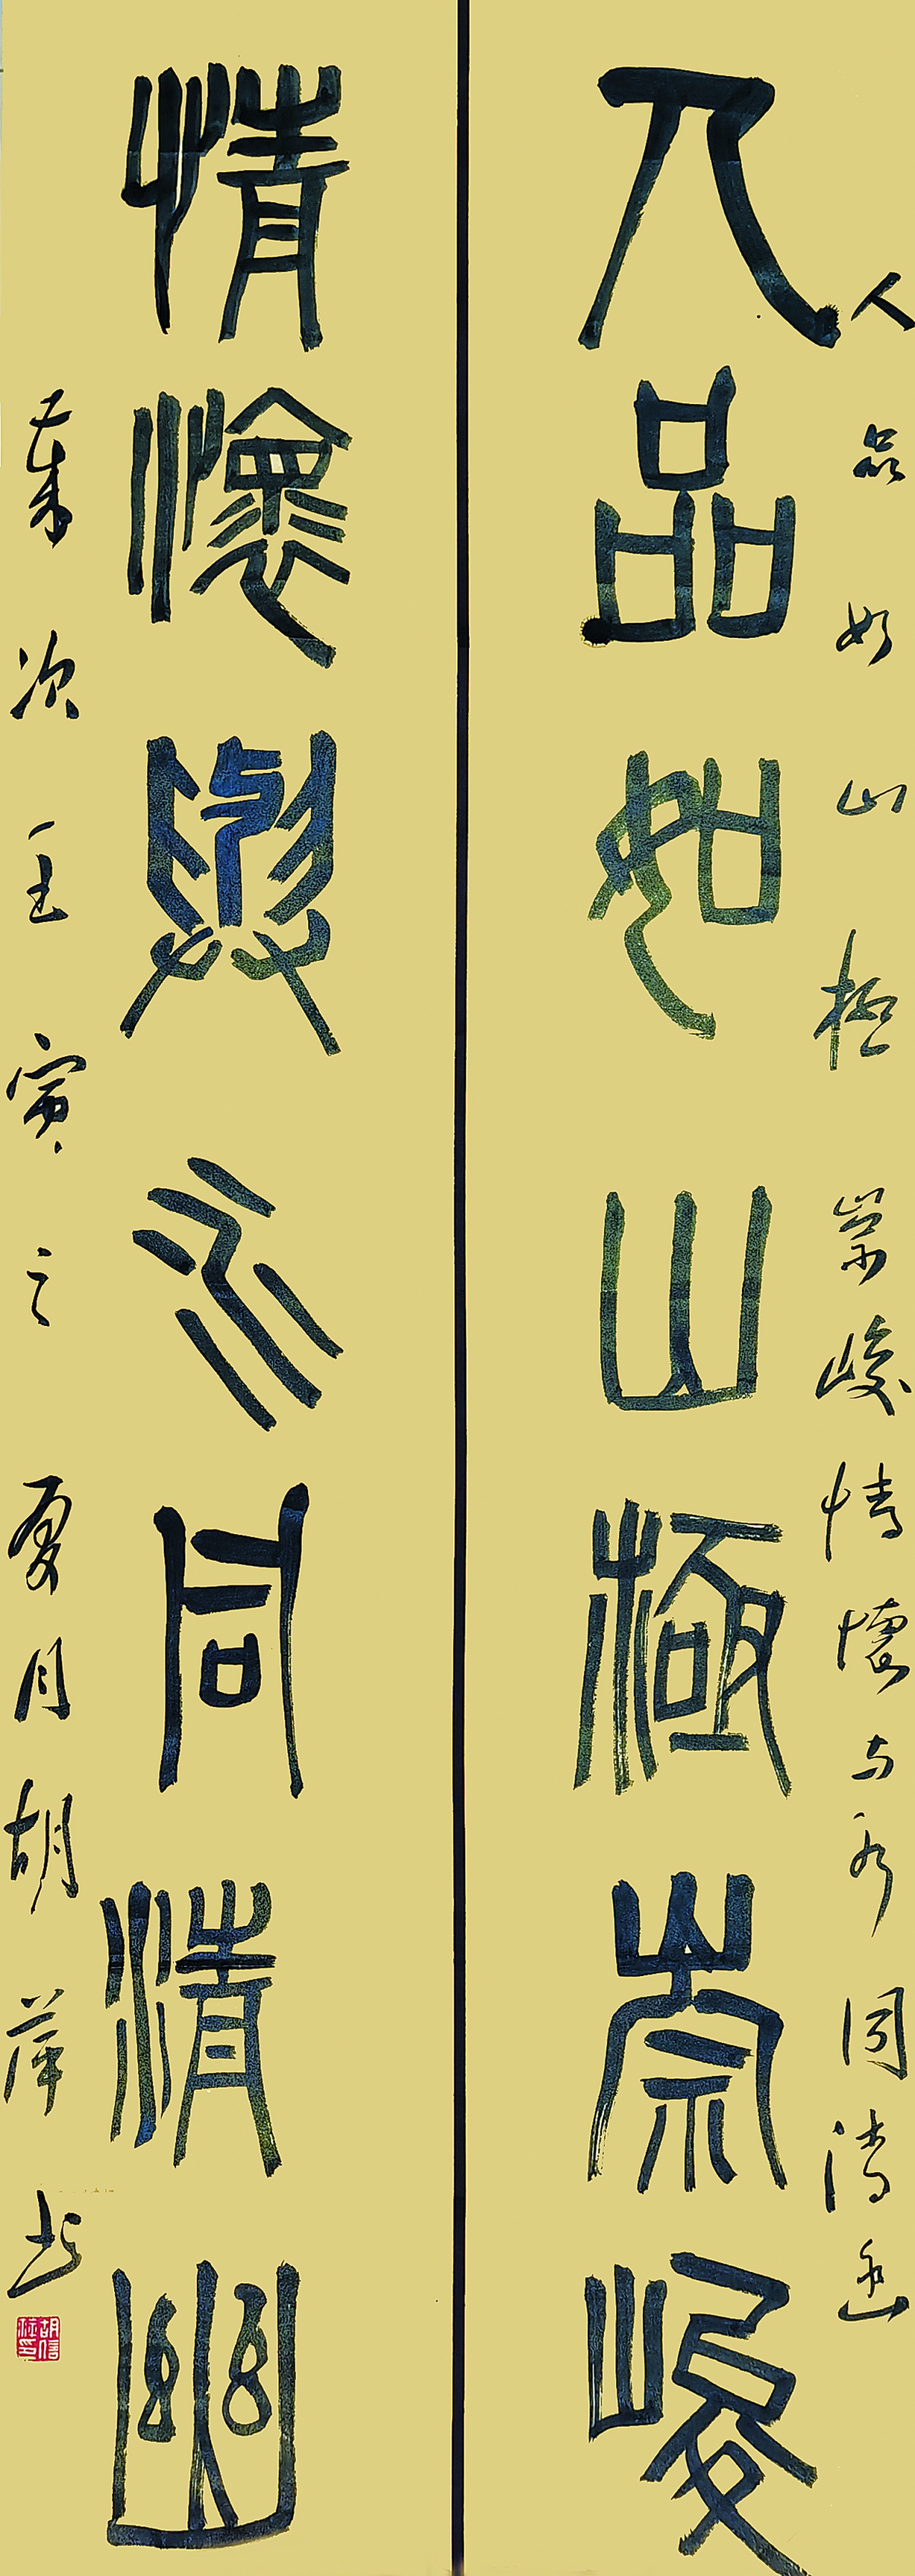 人品如山極崇峻情懷与水同清幽
人品如山極崇峻
情懷與水同清幽
歲次壬寅之夏月胡萍书